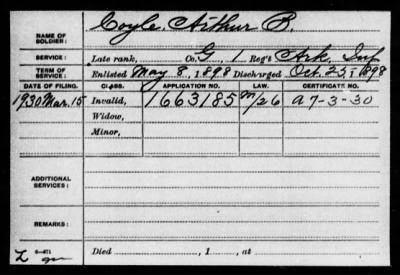 NAME OF SOLDIER: Coyle, Arthur B.
SERVICE: Late rank, Co. G, 1 Reg't Ark. Inf
TERM OF SERVICE: Enlisted May 8, 1898 Discharged Oct. 25, 1898
DATE OF FILING. CLASS. APPLICATION NO. LAW. CERTIFICATE NO.
1930 Mar. 15 Invalid, 1663185 M/26 A 7-3-30
Widow,
Minor,
ADDITIONAL SERVICES:
REMARKS:
L 6-871 Died , 1 , at